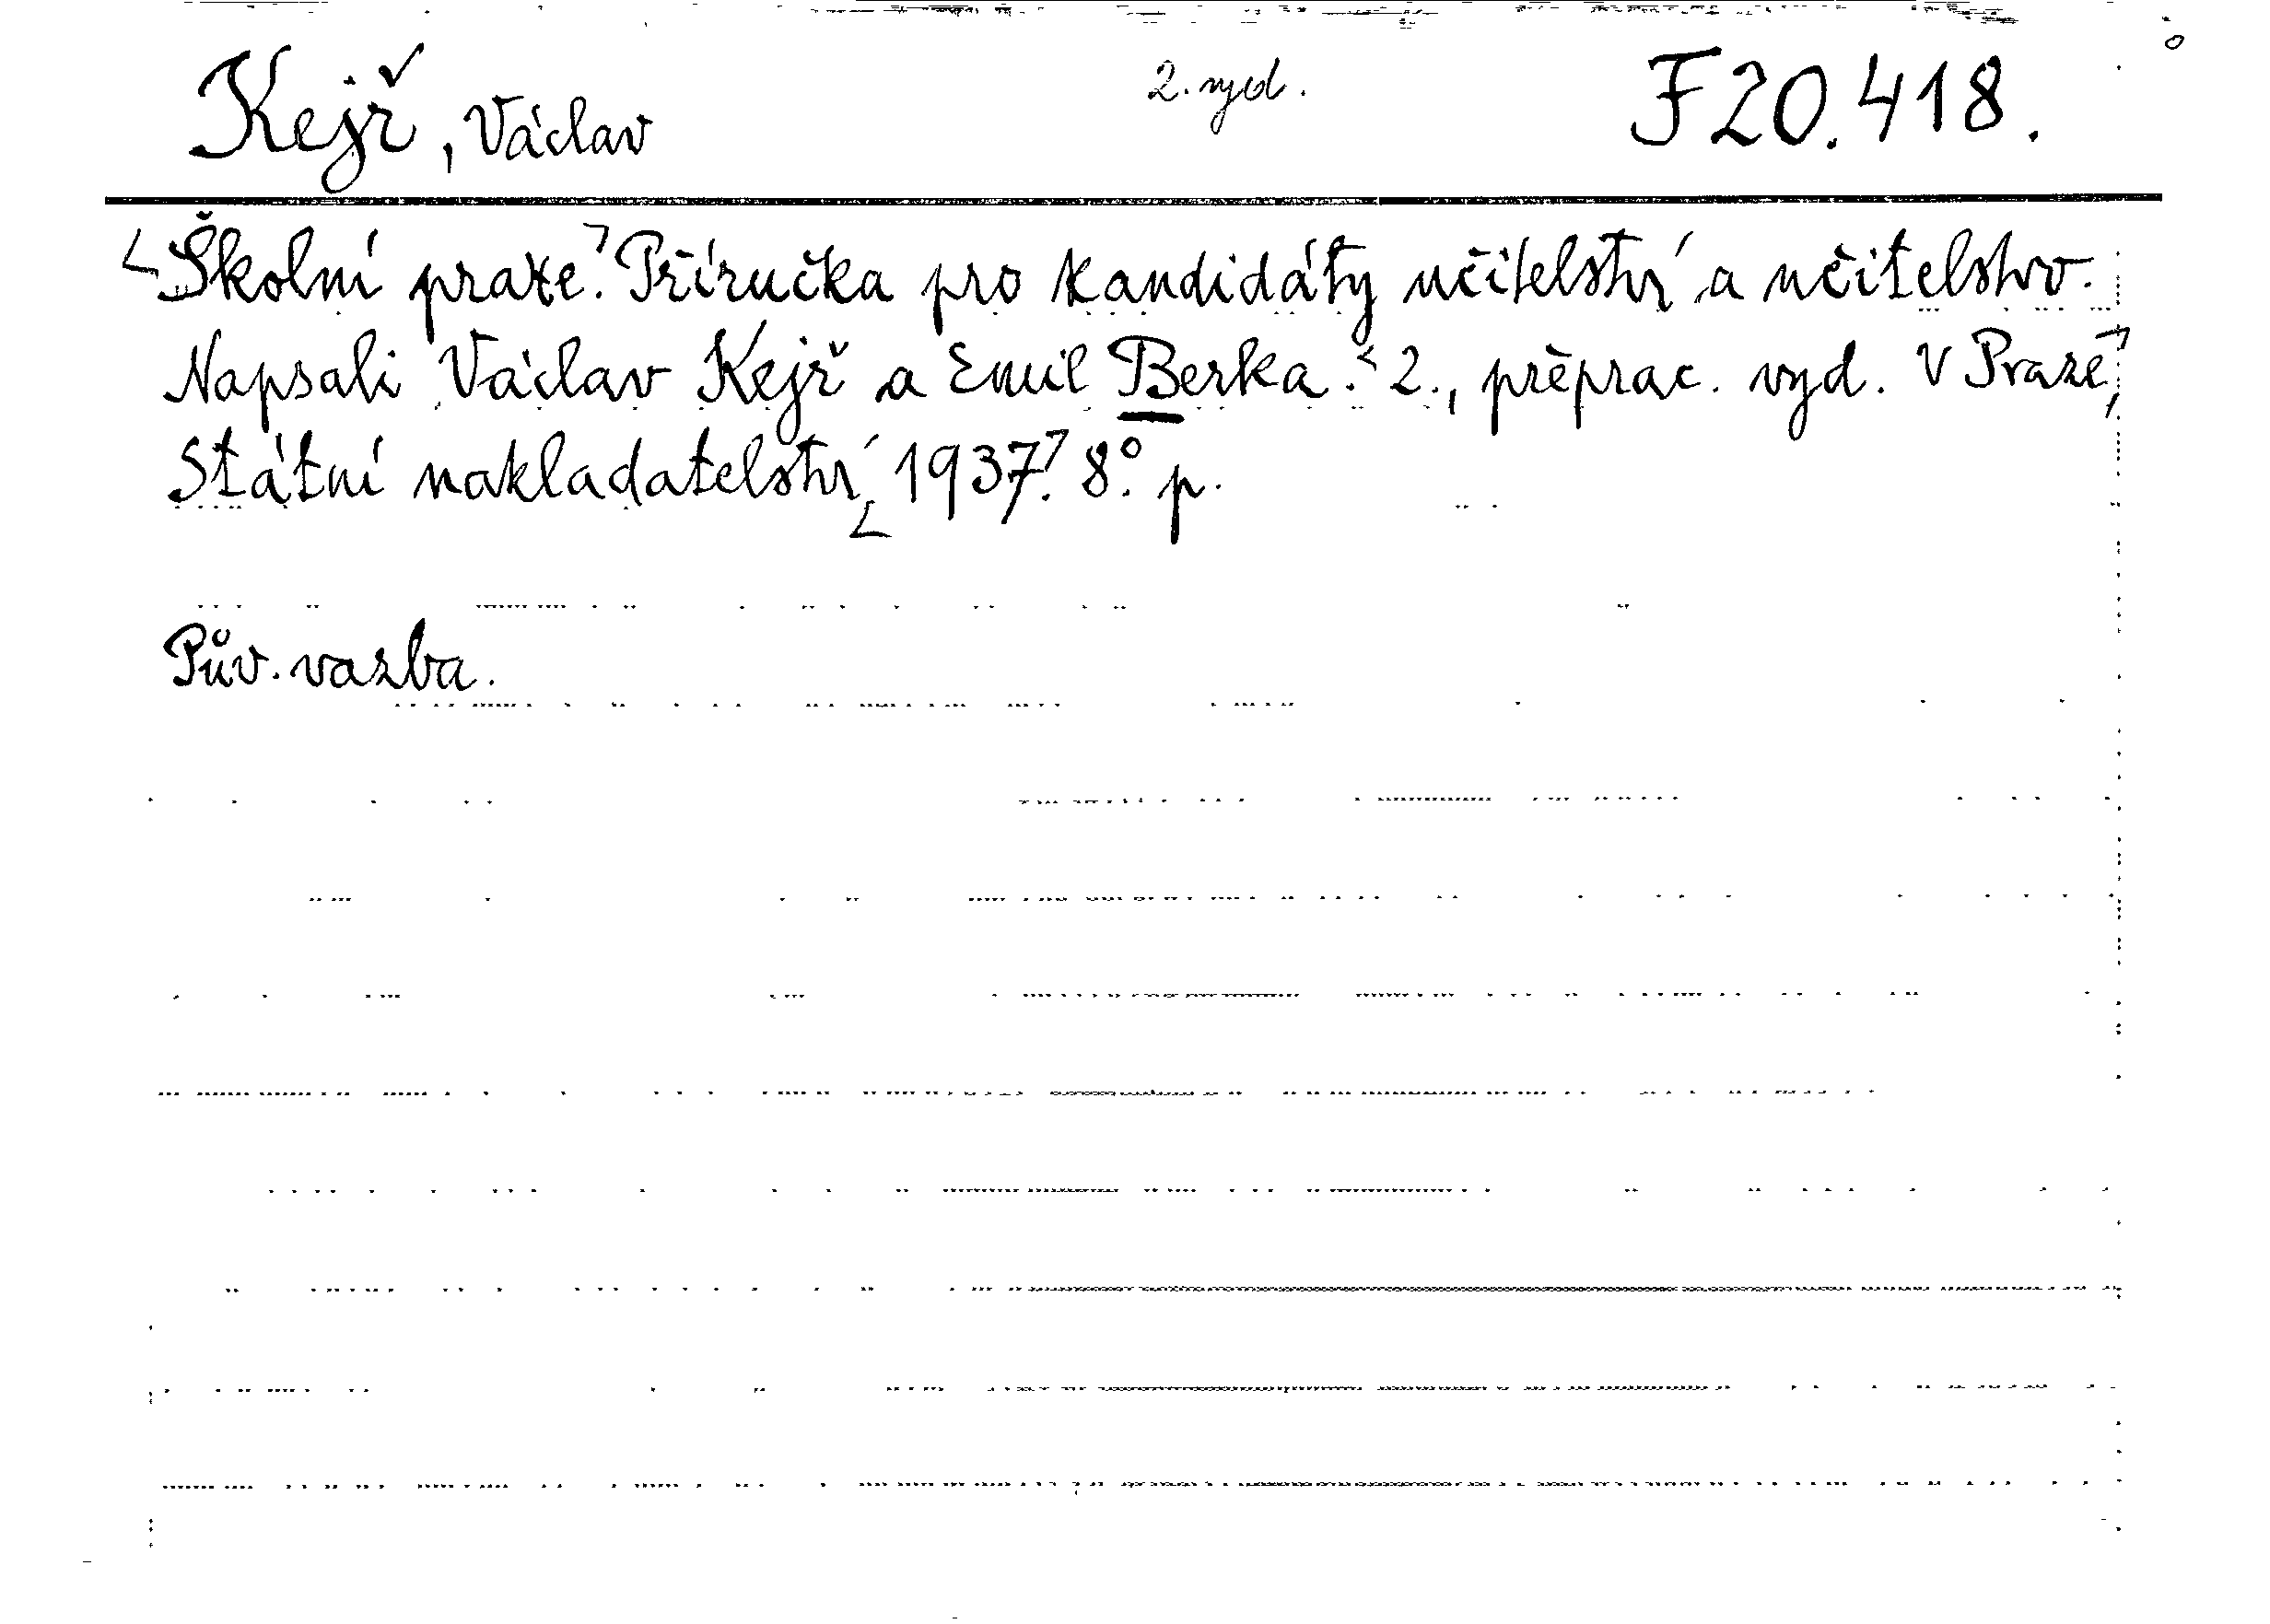 Kejř, Václav 2. vyd. F 20.418.
Školní praxe. Příručka pro kandidáty učitelství a učitelstvo.
Napsali Václav Kejř a Emil Berka. 2., přeprac. vyd. V Praze,
Státní nakladatelství, 1937. 8°. p.
Pův. vazba.